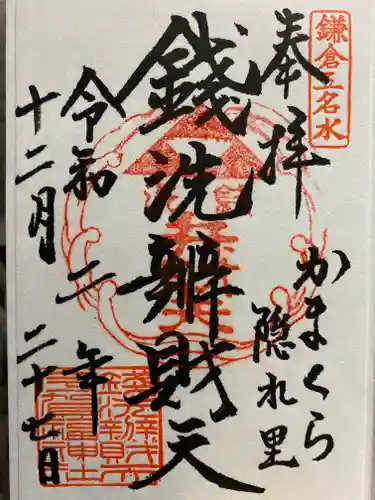 鎌倉五名水
奉拝
かまくら
隠れ里
銭洗辧財天
令和二年
十二月二十七日